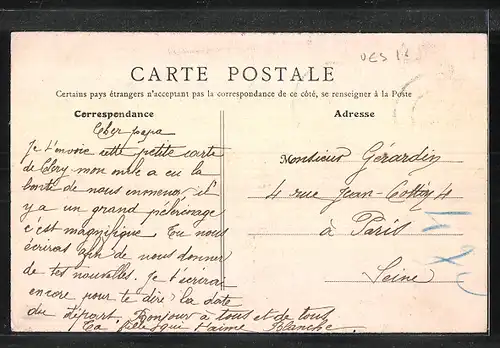 VES 18
CARTE POSTALE
Certains pays étrangers n'acceptant pas la correspondance de ce côté, se renseigner à la Poste
Correspondance
Adresse
Cher papa
Je t'envoie cette petite carte
de Cléry mon oncle a eu la
bonté de nous emmener il
y a un grand pélérinage
c'est magnifique. Tu nous
écriras afin de nous donner
de tes nouvelles. Je t'écrirai
encore pour te dire la date
du départ. Bonjour à tous et de tous
Ta fille qui t'aime Blanche.
Monsieur Gérardin
4 rue Jean-Cottin 4
à Paris
Seine